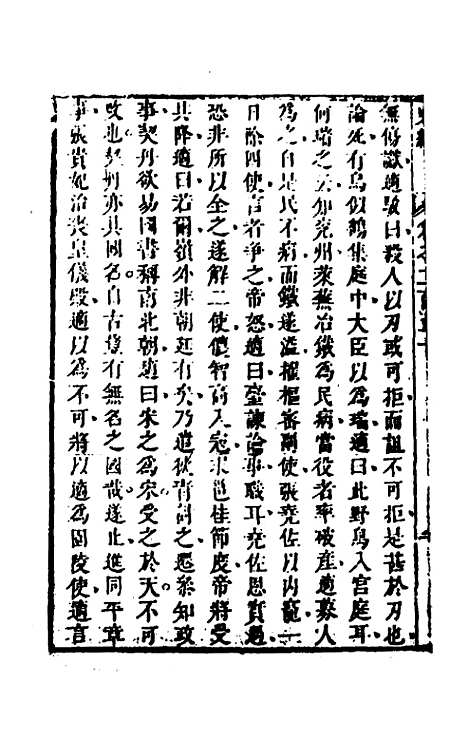 無傷讞適駁曰殺人以刃或可拒而詛不可拒是甚於刃也
論死有鳥似鶴集庭中大臣以為瑞適曰此野鳥入宮庭耳
何瑞之云知兗州萊蕪冶鐵為民病當役者率破產適募人
為之自是民不病而鐵遂溢擢樞密副使張堯佐以內寵一
日除四使言者爭之帝怒適曰臺諫論事職耳堯佐恩實過
恐非所以全之遂解二使儂智高入寇求邕桂節度帝將受
其降適曰若爾嶺外非朝廷有矣乃遣狄青討之還參知政
事契丹欲易國書稱南北朝適曰宋之為宋受之於天不可
改也契丹亦其國名自古豈有無名之國哉遂止進同平章
事張貴妃治喪皇儀殿適以為不可將以適為園陵使適言